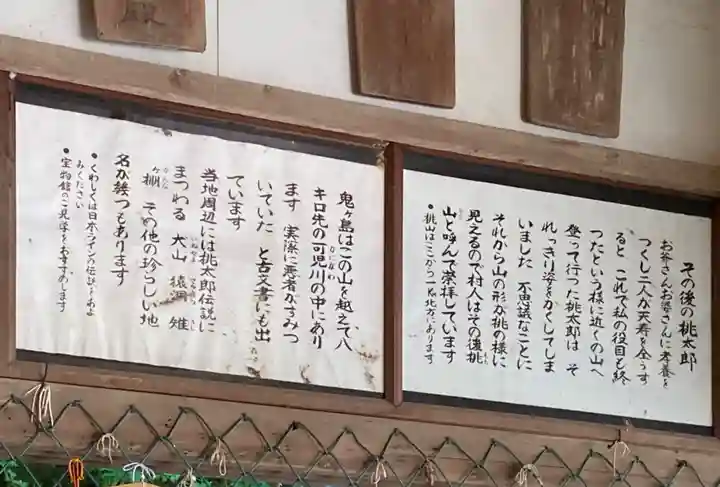 その後の桃太郎
お爺さんお婆さんに孝養を
つくし二人が天寿を全うす
ると これで私の役目も終
ったという様に近くの山へ
登って行った桃太郎は そ
れっきり姿をかくしてしま
いました 不思議なことに
それから山の形が桃の様に
見えるので村人はその後桃
山と呼んで崇拝しています
•桃山はここから 北方にあります
鬼ヶ島はこの山を越えて八
キロ先の可児川の中にあり
ます 実際に悪者がすみつ
いていた と古文書にも出
ています
当地周辺には桃太郎伝説に
まつわる 犬山 猿洞 雉
ヶ棚 その他の珍らしい地
名が幾つもあります
•くわしくは日本ラインの伝説をおよ
みください
•宝物館のご見学をおすすめします
殿